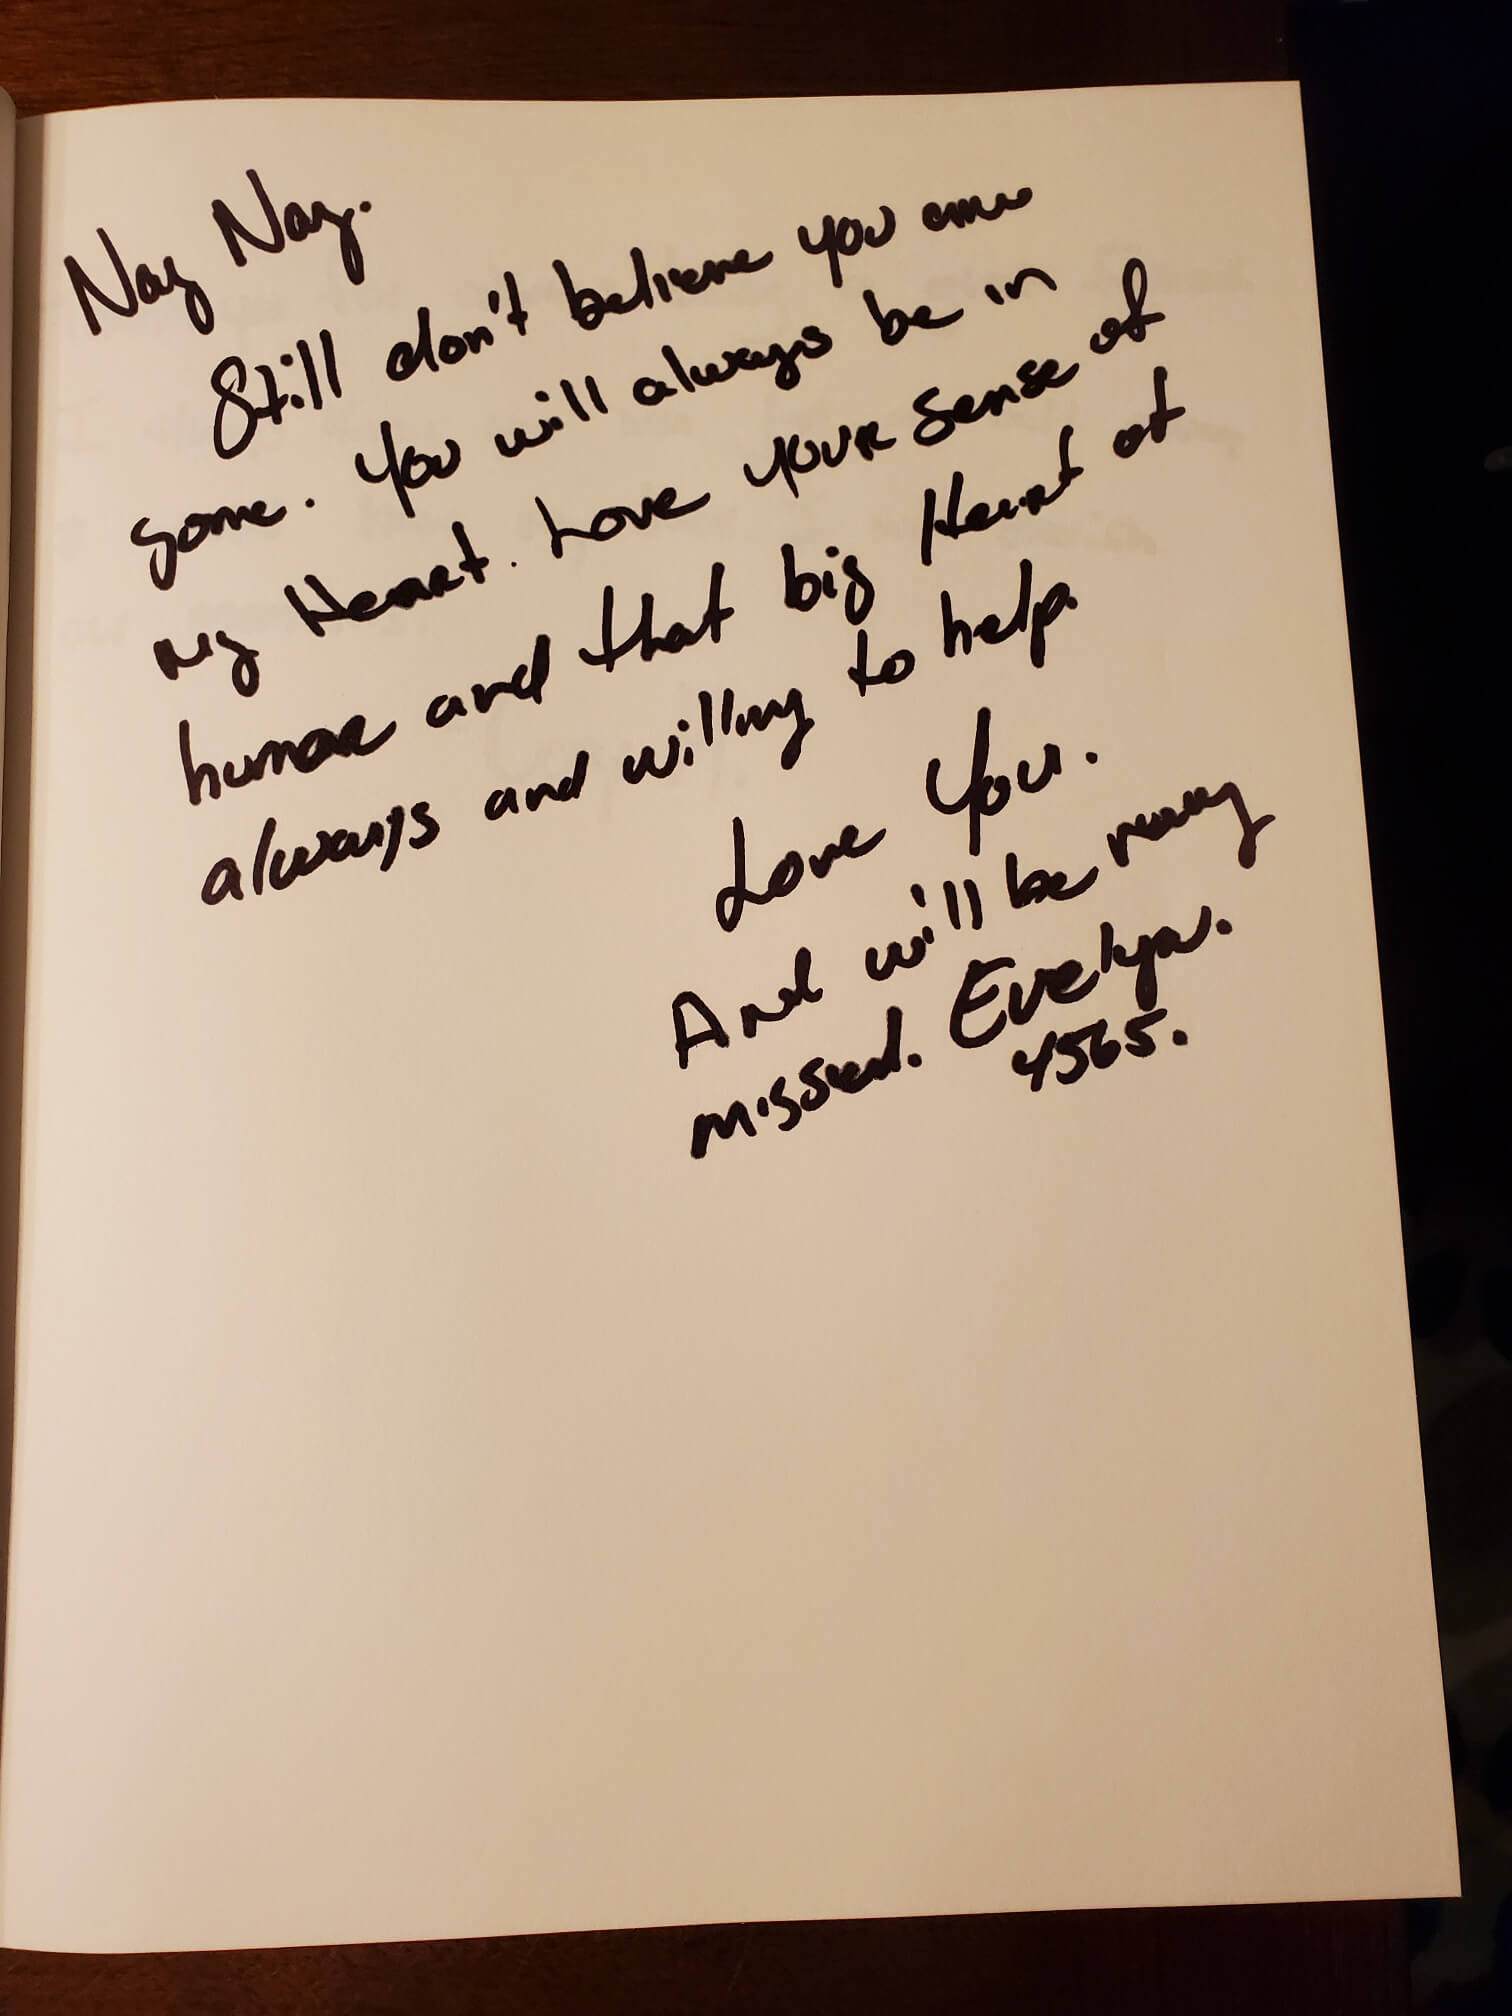 Nay Nay.
Still don't believe you are
gone. You will always be in
my Heart. Love your sense of
humor and that big Heart of
always and willing to help.
Love You.
And will be
missed. Evelyn.
4565.